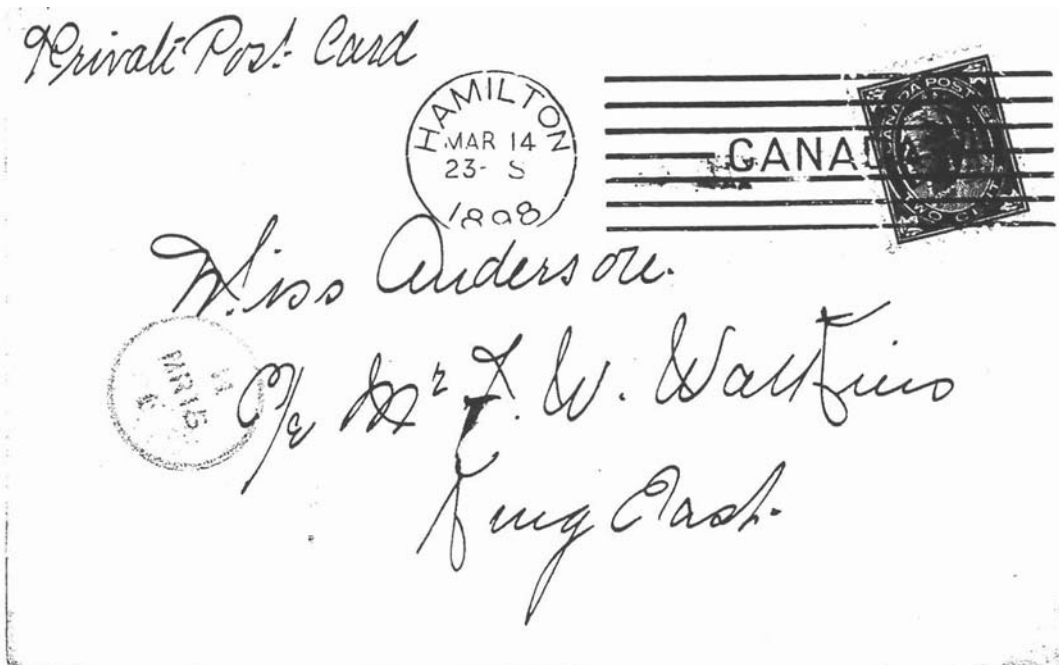 Private Post Card
HAMILTON
MAR 14
23- S
1898
CANADA
CANADA POSTAGE
TWO CENTS
Miss Anderson.
MAR 15
C/o Mr F. W. Watkins
King East.